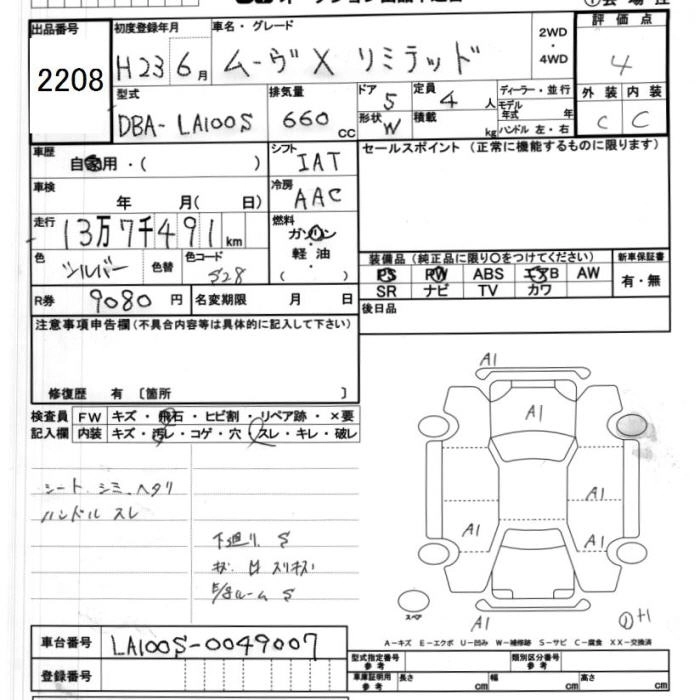 出品番号 2208
初度登録年月 H23 6月
車名・グレード ムーヴX リミテッド
2WD・4WD
評価点 4
外装 内装
C C
型式 DBA-LA100S
排気量 660 CC
ドア 5
形状 W
定員 4 人
積載 kg
ディーラー・並行
モデル年式 年
ハンドル 左・右
車歴 自家用・( )
シフト IAT
車検 年 月( 日)
冷房 AAC
走行 13万7千491 km
燃料 ガソリン・軽油 ( )
色 シルバー 色替 色コード S28
R券 9080円 名変期限 月 日
セールスポイント(正常に機能するものに限ります)
装備品(純正品に限り○をつけてください) 新車保証書
PS PW ABS エアB AW 有・無
SR ナビ TV カワ
後日品
注意事項申告欄(不具合内容等は具体的に記入して下さい)
修復歴 有〔箇所 〕
検査員 FW キズ・飛石・ヒビ割・リペア跡・×要
記入欄 内装 キズ・汚レ・コゲ・穴・スレ・キレ・破レ
シート シミ ヘタリ
ハンドル スレ
下廻リ S
A1
A1
A1
A1
A1
A1
スペア
A-キズ E-エクボ U-凹み W-補修跡 S-サビ C-腐食 XX-交換済
車台番号 LA100S-0049007
登録番号
型式指定番号 参考 類別区分番号 参考
車庫証明用 参考 長さ cm 幅 cm 高さ cm